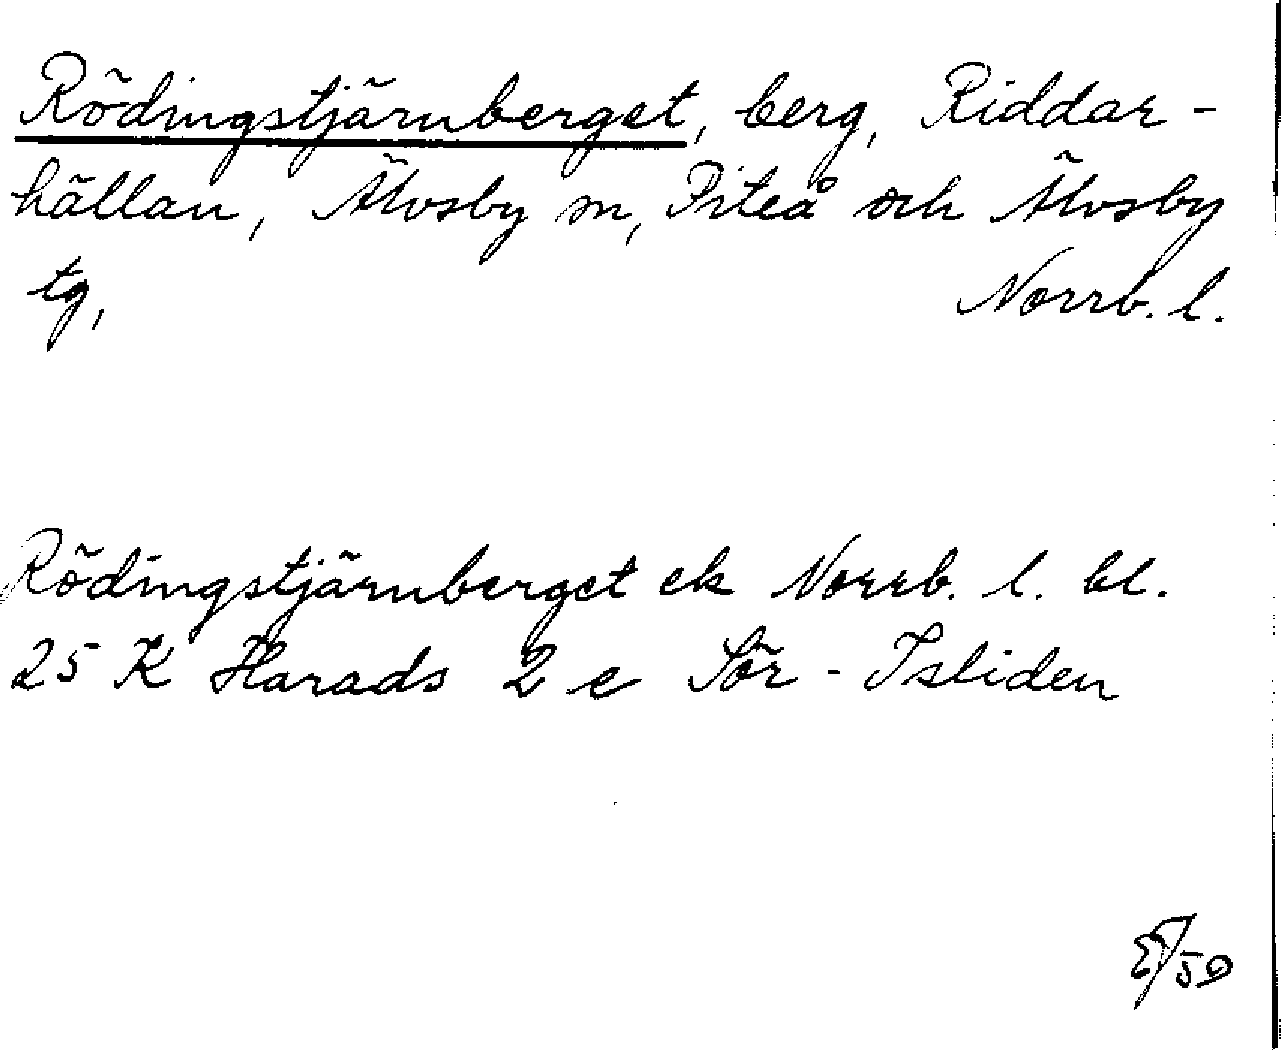 Rödingstjärnberget, berg, Riddar-
hällan, Älvsby m, Piteå och Älvsby
tg, Norrb. l.
Rödingstjärnberget ek Norrb. l. bl.
25 K Harads 2 e Sör-Isliden
/59